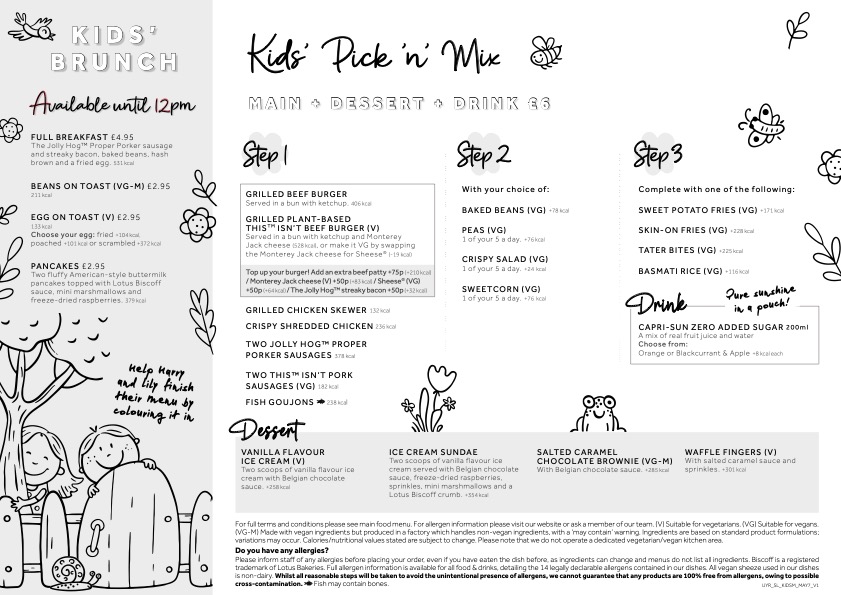 KIDS'
BRUNCH
Available until 12pm
FULL BREAKFAST £4.95
The Jolly Hog™ Proper Porker sausage
and streaky bacon, baked beans, hash
brown and a fried egg. 551 kcal
BEANS ON TOAST (VG-M) £2.95
211 kcal
EGG ON TOAST (V) £2.95
133 kcal
Choose your egg: fried +104 kcal,
poached +101 kcal or scrambled +372 kcal
PANCAKES £2.95
Two fluffy American-style buttermilk
pancakes topped with Lotus Biscoff
sauce, mini marshmallows and
freeze-dried raspberries. 379 kcal
Help Harry
and Lily finish
their menu by
colouring it in
Kids' Pick 'n' Mix
MAIN + DESSERT + DRINK £6
Step 1
GRILLED BEEF BURGER
Served in a bun with ketchup. 406 kcal
GRILLED PLANT-BASED
THIS™ ISN'T BEEF BURGER (V)
Served in a bun with ketchup and Monterey
Jack cheese (528 kcal), or make it VG by swapping
the Monterey Jack cheese for Sheese® (-19 kcal)
Top up your burger! Add an extra beef patty +75p (+210 kcal)
/ Monterey Jack cheese (V) +50p (+83 kcal) / Sheese® (VG)
+50p (+64 kcal) / The Jolly Hog™ streaky bacon +50p (+32 kcal)
GRILLED CHICKEN SKEWER 132 kcal
CRISPY SHREDDED CHICKEN 236 kcal
TWO JOLLY HOG™ PROPER
PORKER SAUSAGES 378 kcal
TWO THIS™ ISN'T PORK
SAUSAGES (VG) 182 kcal
FISH GOUJONS 238 kcal
Step 2
With your choice of:
BAKED BEANS (VG) +78 kcal
PEAS (VG)
1 of your 5 a day. +76 kcal
CRISPY SALAD (VG)
1 of your 5 a day. +24 kcal
SWEETCORN (VG)
1 of your 5 a day. +76 kcal
Step 3
Complete with one of the following:
SWEET POTATO FRIES (VG) +171 kcal
SKIN-ON FRIES (VG) +228 kcal
TATER BITES (VG) +225 kcal
BASMATI RICE (VG) +116 kcal
Drink
Pure sunshine
in a pouch!
CAPRI-SUN ZERO ADDED SUGAR 200ml
A mix of real fruit juice and water
Choose from:
Orange or Blackcurrant & Apple +8 kcal each
Dessert
VANILLA FLAVOUR
ICE CREAM (V)
Two scoops of vanilla flavour ice
cream with Belgian chocolate
sauce. +258 kcal
ICE CREAM SUNDAE
Two scoops of vanilla flavour ice
cream served with Belgian chocolate
sauce, freeze-dried raspberries,
sprinkles, mini marshmallows and a
Lotus Biscoff crumb. +354 kcal
SALTED CARAMEL
CHOCOLATE BROWNIE (VG-M)
With Belgian chocolate sauce. +285 kcal
WAFFLE FINGERS (V)
With salted caramel sauce and
sprinkles. +301 kcal
For full terms and conditions please see main food menu. For allergen information please visit our website or ask a member of our team. (V) Suitable for vegetarians. (VG) Suitable for vegans.
(VG-M) Made with vegan ingredients but produced in a factory which handles non-vegan ingredients, with a 'may contain' warning. Ingredients are based on standard product formulations;
variations may occur. Calories/nutritional values stated are subject to change. Please note that we do not operate a dedicated vegetarian/vegan kitchen area.
Do you have any allergies?
Please inform staff of any allergies before placing your order, even if you have eaten the dish before, as ingredients can change and menus do not list all ingredients. Biscoff is a registered
trademark of Lotus Bakeries. Full allergen information is available for all food & drinks, detailing the 14 legally declarable allergens contained in our dishes. All vegan sheeze used in our dishes
is non-dairy. Whilst all reasonable steps will be taken to avoid the unintentional presence of allergens, we cannot guarantee that any products are 100% free from allergens, owing to possible
cross-contamination. Fish may contain bones.
UYR_SL_KIDSM_MAY7_V1